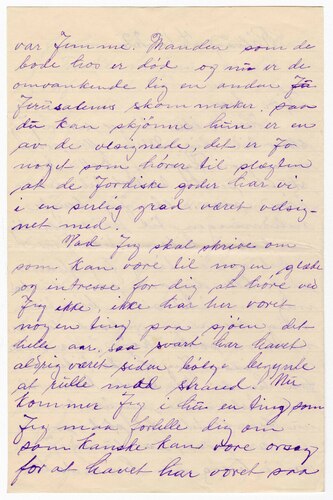 var Jemme. Manden som de
bode hos er död og nu er de
omvankende lig en anden Je
Jerusalems skommaker. saa
du kan skjönne hun er en
av de velsignede, det er Jo
noget som hörer til slegten
at de Jordiske goder har vi
i en sirlig grad været velsig-
net med.
Vad Jeg skal skrive om
som kan være til nogen glæde
og entresse for dig at höre ved
Jeg ikke, ikke har her været
nogen ting paa sjöen det
hele aar. saa svart har havet
aldrig været siden bölge begynte
at rulle mod strand! Nu
kommer Jeg i hu en ting som
Jeg maa fortelle dig om
som kanske kan vore orsag
for at havet har været saa